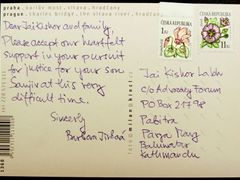 praha: karlův most, vltava, hradčany
prague: charles bridge, vltava river, hradčany
ČESKÁ REPUBLIKA
ČESKÁ REPUBLIKA
Dear Jai Kishor and family,
Please accept our heartfelt
support in your pursuit
for justice for your son
Sanjiv at this very
difficult time.
Sincerely
Barbara
Jai Kishor Labh
c/o Advocacy Forum
PO Box 21798
Pabitra
Pyara Marg
Kathmandu